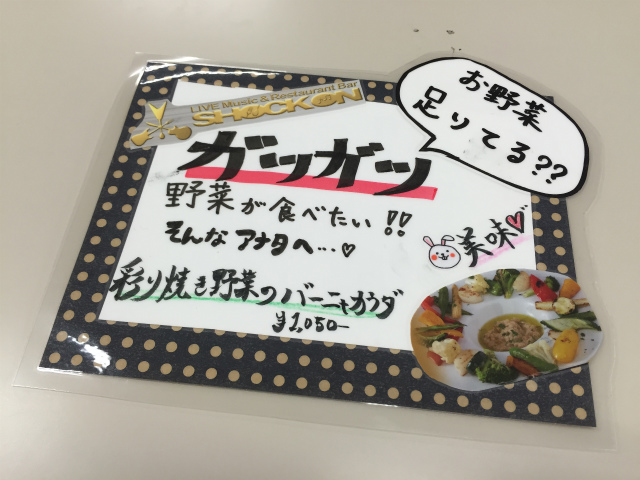 LIVE Music & Restaurant Bar
SHOCK ON
お野菜
足りてる??
ガツガツ
野菜が食べたい!!
そんなアナタへ…♡
美味♡
彩り焼き野菜のバーニャカウダ
¥1,050-